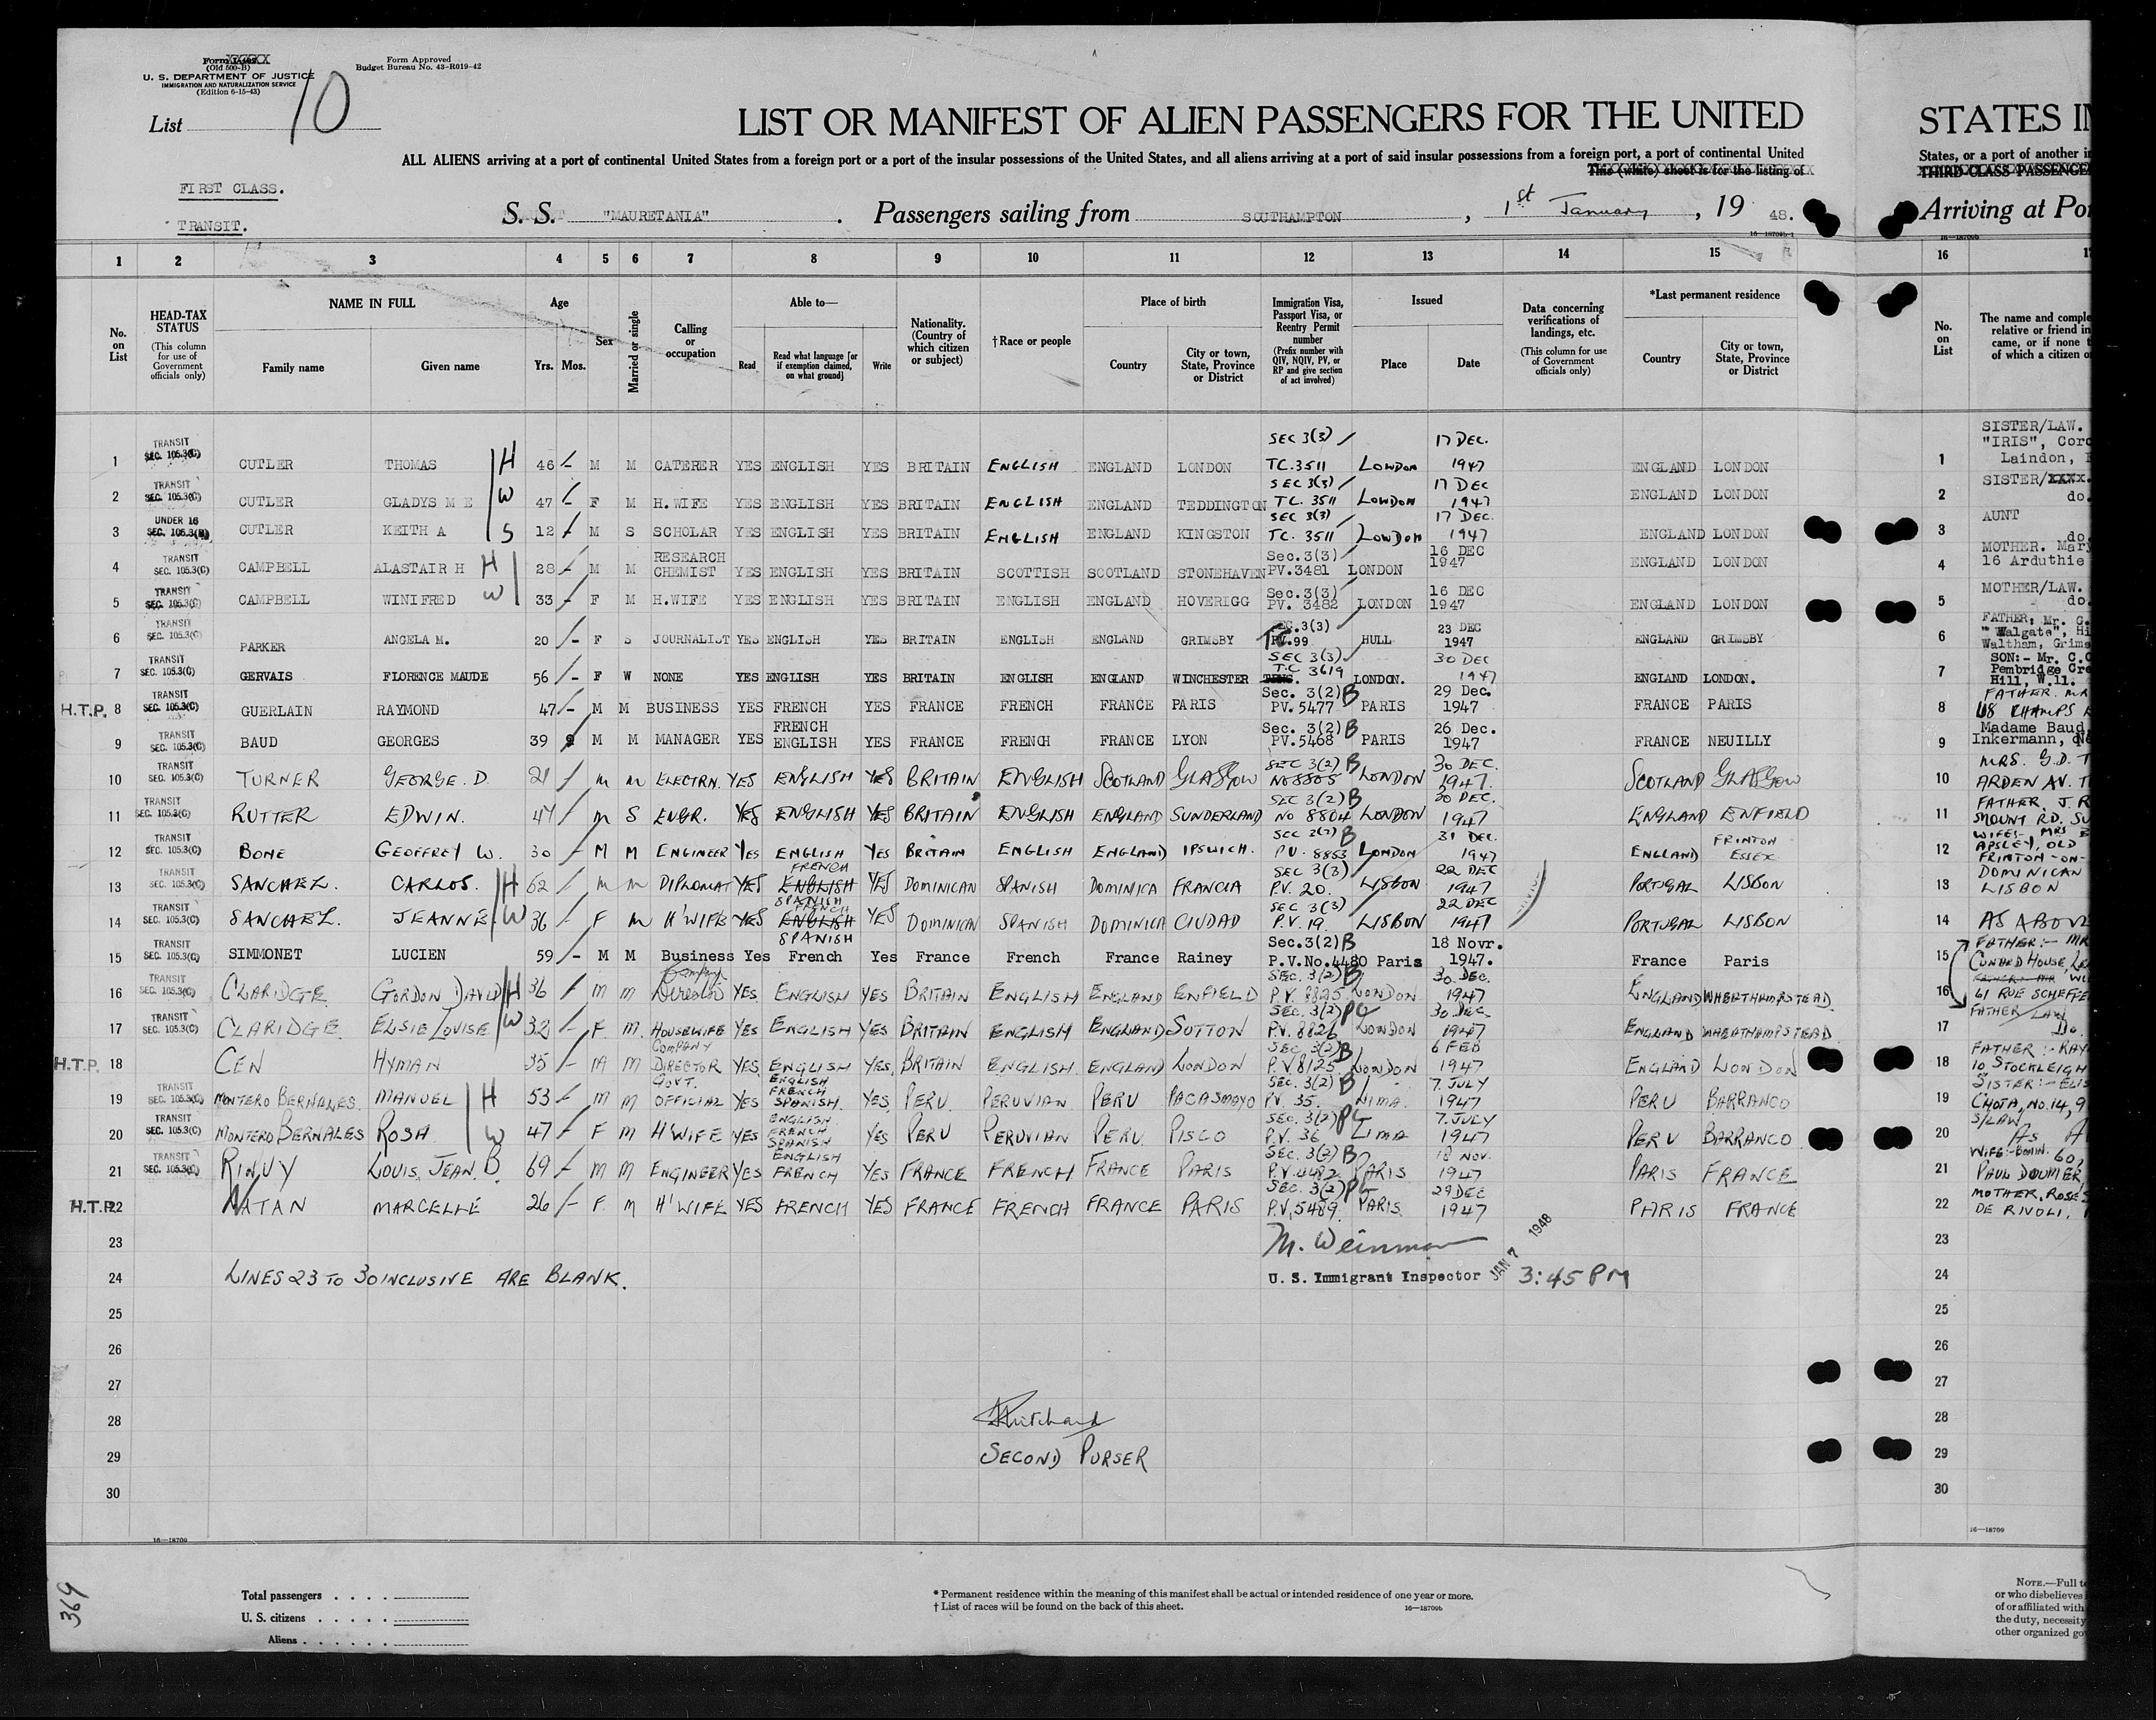 Form Approved
Budget Bureau No. 43-R019-42
(Old 500-B)
U. S. DEPARTMENT OF JUSTICE
IMMIGRATION AND NATURALIZATION SERVICE
(Edition 6-15-43)
List 10
LIST OR MANIFEST OF ALIEN PASSENGERS FOR THE UNITED STATES
ALL ALIENS arriving at a port of continental United States from a foreign port or a port of the insular possessions of the United States, and all aliens arriving at a port of said insular possessions from a foreign port, a port of continental United States, or a port of another
This (white) sheet is for the listing of THIRD-CLASS PASSENGE
FIRST CLASS.
TRANSIT.
S. S. "MAURETANIA". Passengers sailing from SOUTHAMPTON, 1st January, 19 48. Arriving at Por
16-18709b-1
16-18709b
1 2 3 4 5 6 7 8 9 10 11 12 13 14 15 16
No. on List
HEAD-TAX STATUS (This column for use of Government officials only)
NAME IN FULL Family name Given name
Age Yrs. Mos.
Sex
Married or single
Calling or occupation
Able to— Read Read what language [or if exemption claimed, on what ground] Write
Nationality. (Country of which citizen or subject)
†Race or people
Place of birth Country City or town, State, Province or District
Immigration Visa, Passport Visa, or Reentry Permit number (Prefix number with QIV, NQIV, PV, or RP and give section of act involved)
Issued Place Date
Data concerning verifications of landings, etc. (This column for use of Government officials only)
*Last permanent residence Country City or town, State, Province or District
No. on List
The name and comple
relative or friend in
came, or if none t
of which a citizen o
1 TRANSIT SEC. 105.3(C) CUTLER THOMAS H 46 M M CATERER YES ENGLISH YES BRITAIN ENGLISH ENGLAND LONDON SEC 3(3) TC. 3511 LONDON 17 DEC. 1947 ENGLAND LONDON 1 SISTER/LAW. "IRIS", Laindon,
2 TRANSIT SEC. 105.3(C) CUTLER GLADYS M E W 47 F M H.WIFE YES ENGLISH YES BRITAIN ENGLISH ENGLAND TEDDINGTON SEC 3(3) TC. 3511 LONDON 17 DEC 1947 ENGLAND LONDON 2 SISTER/ do.
3 UNDER 16 SEC. 105.3(B) CUTLER KEITH A S 12 M S SCHOLAR YES ENGLISH YES BRITAIN ENGLISH ENGLAND KINGSTON SEC 3(3) TC. 3511 LONDON 17 DEC. 1947 ENGLAND LONDON 3 AUNT do.
4 TRANSIT SEC. 105.3(C) CAMPBELL ALASTAIR H H 28 M M RESEARCH CHEMIST YES ENGLISH YES BRITAIN SCOTTISH SCOTLAND STONEHAVEN Sec.3(3) PV.3481 LONDON 16 DEC 1947 ENGLAND LONDON 4 MOTHER. Mary 16 Arduthie
5 TRANSIT SEC. 105.3(C) CAMPBELL WINIFRED W 33 F M H.WIFE YES ENGLISH YES BRITAIN ENGLISH ENGLAND HOVERIGG Sec.3(3) PV. 3482 LONDON 16 DEC 1947 ENGLAND LONDON 5 MOTHER/LAW. do.
6 TRANSIT SEC. 105.3(C) PARKER ANGELA M. 20 F S JOURNALIST YES ENGLISH YES BRITAIN ENGLISH ENGLAND GRIMSBY SEC.3(3) .99 HULL 23 DEC 1947 ENGLAND GRIMSBY 6 FATHER: Mr. G. "Walgate", Waltham, Grims
7 TRANSIT SEC. 105.3(C) GERVAIS FLORENCE MAUDE 56 F W NONE YES ENGLISH YES BRITAIN ENGLISH ENGLAND WINCHESTER SEC 3(3) T.C 3619 LONDON. 30 DEC 1947 ENGLAND LONDON. 7 SON:- Mr. C. Pembridge Cre Hill, W.11.
H.T.P. 8 TRANSIT SEC. 105.3(C) GUERLAIN RAYMOND 47 M M BUSINESS YES FRENCH YES FRANCE FRENCH FRANCE PARIS Sec. 3(2) B PV.5477 PARIS 29 Dec. 1947 FRANCE PARIS 8 FATHER. MR 68 CHAMPS
9 TRANSIT SEC. 105.3(C) BAUD GEORGES 39 9 M M MANAGER YES FRENCH ENGLISH YES FRANCE FRENCH FRANCE LYON Sec. 3(2) B PV.5468 PARIS 26 Dec. 1947 FRANCE NEUILLY 9 Madame Baud, Inkermann,
10 TRANSIT SEC. 105.3(C) TURNER GEORGE. D 21 M M ELECTRN. YES ENGLISH YES BRITAIN ENGLISH SCOTLAND GLASGOW SEC 3(2) B NO 8805 LONDON 30 DEC. 1947. SCOTLAND GLASGOW 10 MRS. G.D. T ARDEN AV.
11 TRANSIT SEC. 105.3(C) RUTTER EDWIN. 47 M S ENGR. YES ENGLISH YES BRITAIN ENGLISH ENGLAND SUNDERLAND SEC 3(2) B NO 8804 LONDON 30 DEC. 1947 ENGLAND ENFIELD 11 FATHER. J. R MOUNT RD. SU
12 TRANSIT SEC. 105.3(C) BONE GEOFFREY W. 30 M M ENGINEER YES ENGLISH YES BRITAIN ENGLISH ENGLAND IPSWICH. B P.V. 8853 LONDON 31 DEC. 1947 ENGLAND FRINTON ESSEX 12 WIFE:- MRS APSLEY, OLD FRINTON-ON-
13 TRANSIT SEC. 105.3(C) SANCHEZ. CARLOS. H 62 M M DIPLOMAT YES FRENCH ENGLISH SPANISH YES DOMINICAN SPANISH DOMINICA FRANCIA SEC 3(3) P.V. 20. LISBON 22 DEC 1947 PORTUGAL LISBON 13 DOMINICAN LISBON
14 TRANSIT SEC. 105.3(C) SANCHEZ. JEANNE. W 36 F M H'WIFE YES FRENCH ENGLISH SPANISH YES DOMINICAN SPANISH DOMINICA CIUDAD SEC 3(3) P.V. 19. LISBON 22 DEC 1947 PORTUGAL LISBON 14 AS ABOVE
15 TRANSIT SEC. 105.3(C) SIMMONET LUCIEN 59 M M Business Yes French Yes France French France Rainey Sec.3(2) B P.V.No.4480 Paris 18 Novr. 1947. France Paris 15 FATHER:- MR CUNARD HOUSE,
16 TRANSIT SEC. 105.3(C) CLARIDGE GORDON DAVID H 36 M M Company Director YES ENGLISH YES BRITAIN ENGLISH ENGLAND ENFIELD SEC. 3(2) B P.V. 8825 LONDON 30 DEC. 1947 ENGLAND WHEATHAMPSTEAD 16 61 RUE SCHEFFE
17 TRANSIT SEC. 105.3(C) CLARIDGE ELSIE LOUISE W 32 F M. HOUSEWIFE YES ENGLISH YES BRITAIN ENGLISH ENGLAND SUTTON SEC. 3(2) P.V. 8826 LONDON 30 DEC. 1947 ENGLAND WHEATHAMPSTEAD 17 FATHER/LAW Do.
H.T.P. 18 CEN HYMAN 35 M M COMPANY DIRECTOR YES ENGLISH YES BRITAIN ENGLISH. ENGLAND LONDON SEC 3(2) B P.V. 8125 LONDON 6 FEB 1947 ENGLAND LONDON 18 FATHER:- RAY 10 STOCKLEIGH
19 TRANSIT SEC. 105.3(C) MONTERO BERNALES. MANUEL H 53 M M GOVT. OFFICIAL YES ENGLISH FRENCH SPANISH. YES PERU. PERUVIAN PERU PACASMAYO SEC. 3(2) B P.V. 35. LIMA. 7. JULY 1947 PERU BARRANCO 19 SISTER:- ELIS CHOTA, NO. 14,
20 TRANSIT SEC. 105.3(C) MONTERO BERNALES ROSA W 47 F M H'WIFE YES ENGLISH FRENCH SPANISH YES PERU PERUVIAN PERU. PISCO SEC. 3(2) P.V. 36 LIMA 7. JULY 1947 PERU BARRANCO 20 S/LAW As A
21 TRANSIT SEC. 105.3(C) LOUIS, JEAN. B. 69 M M ENGINEER YES ENGLISH FRENCH YES FRANCE FRENCH FRANCE PARIS SEC. 3(2) B P.V. 4482 PARIS 18 NOV. 1947 PARIS FRANCE 21 PAUL DOUMER,
H.T.P. 22 NATAN MARCELLE 26 F. M H'WIFE YES FRENCH YES FRANCE FRENCH FRANCE PARIS SEC. 3(2) P.V. 5489. PARIS. 29 DEC 1947 PARIS FRANCE 22 MOTHER, ROSE DE RIVOLI,
23 M. Weinman 23
24 LINES 23 TO 30 INCLUSIVE ARE BLANK. U. S. Immigrant Inspector JAN 7 1948 3:45 PM 24
25 25
26 26
27 27
28 28
29 SECOND PURSER 29
30 30
16—18709 16—18709
369
Total passengers
U. S. citizens
Aliens
* Permanent residence within the meaning of this manifest shall be actual or intended residence of one year or more.
† List of races will be found on the back of this sheet. 16—18709b
NOTE.—Full te
or who disbelieves
of or affiliated with
the duty, necessity
other organized go